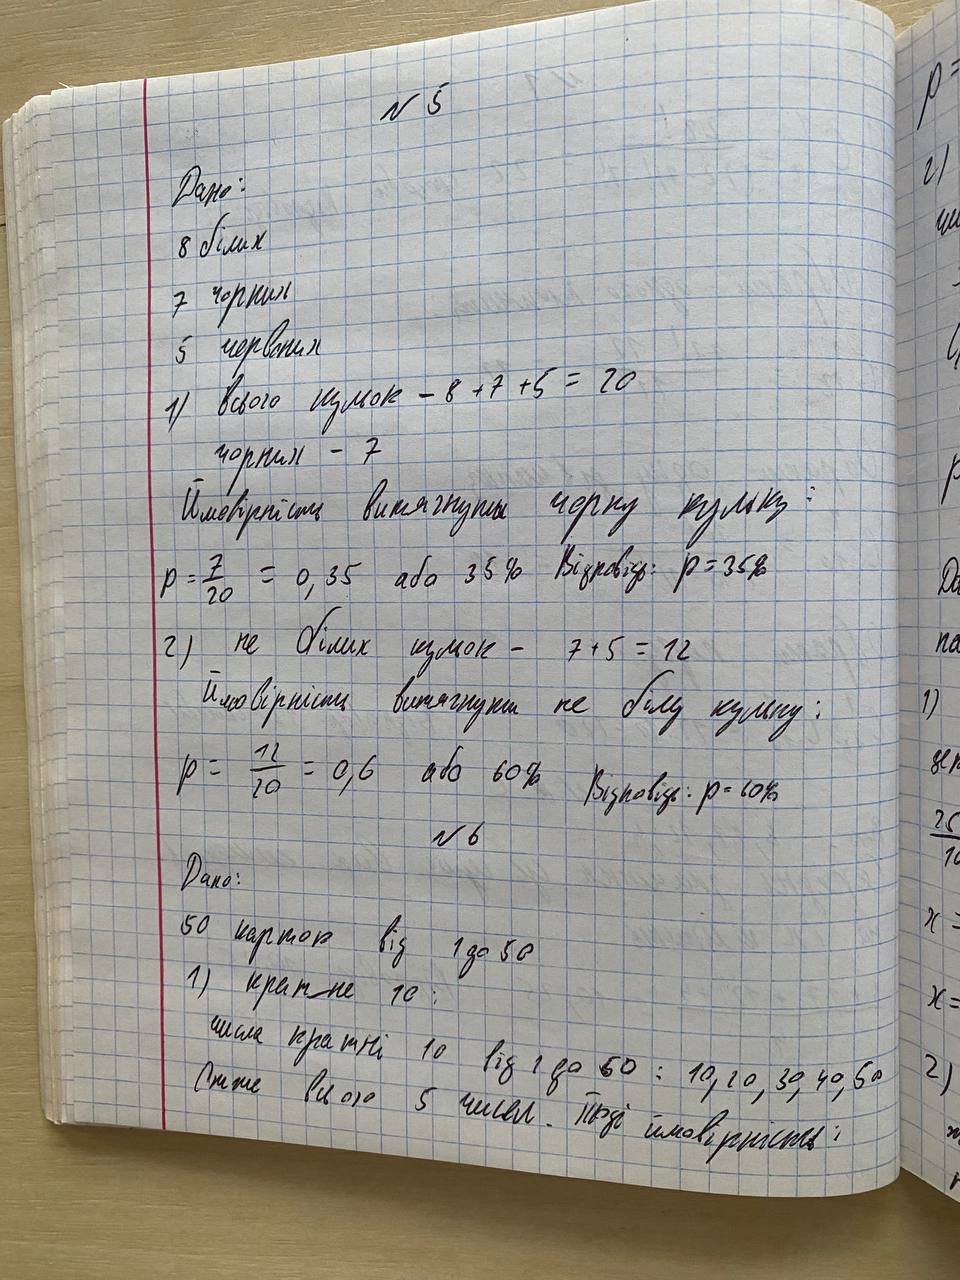 № 5
Дано:
8 білих
7 чорних
5 червоних
1) всього кульок – 8 + 7 + 5 = 20
чорних – 7
Ймовірність витягнути чорну кульку:
p = 7/20 = 0,35 або 35% Відповідь: p = 35%
2) не білих кульок – 7 + 5 = 12
Ймовірність витягнути не білу кульку:
p = 12/20 = 0,6 або 60% Відповідь: p = 60%
№ 6
Дано:
50 карток від 1 до 50
1) кратне 10:
числа кратні 10 від 1 до 50 : 10, 20, 30, 40, 50
Отже всього 5 чисел. Тоді ймовірність:
p =
2)
1)
25
10
x =
x =
2)